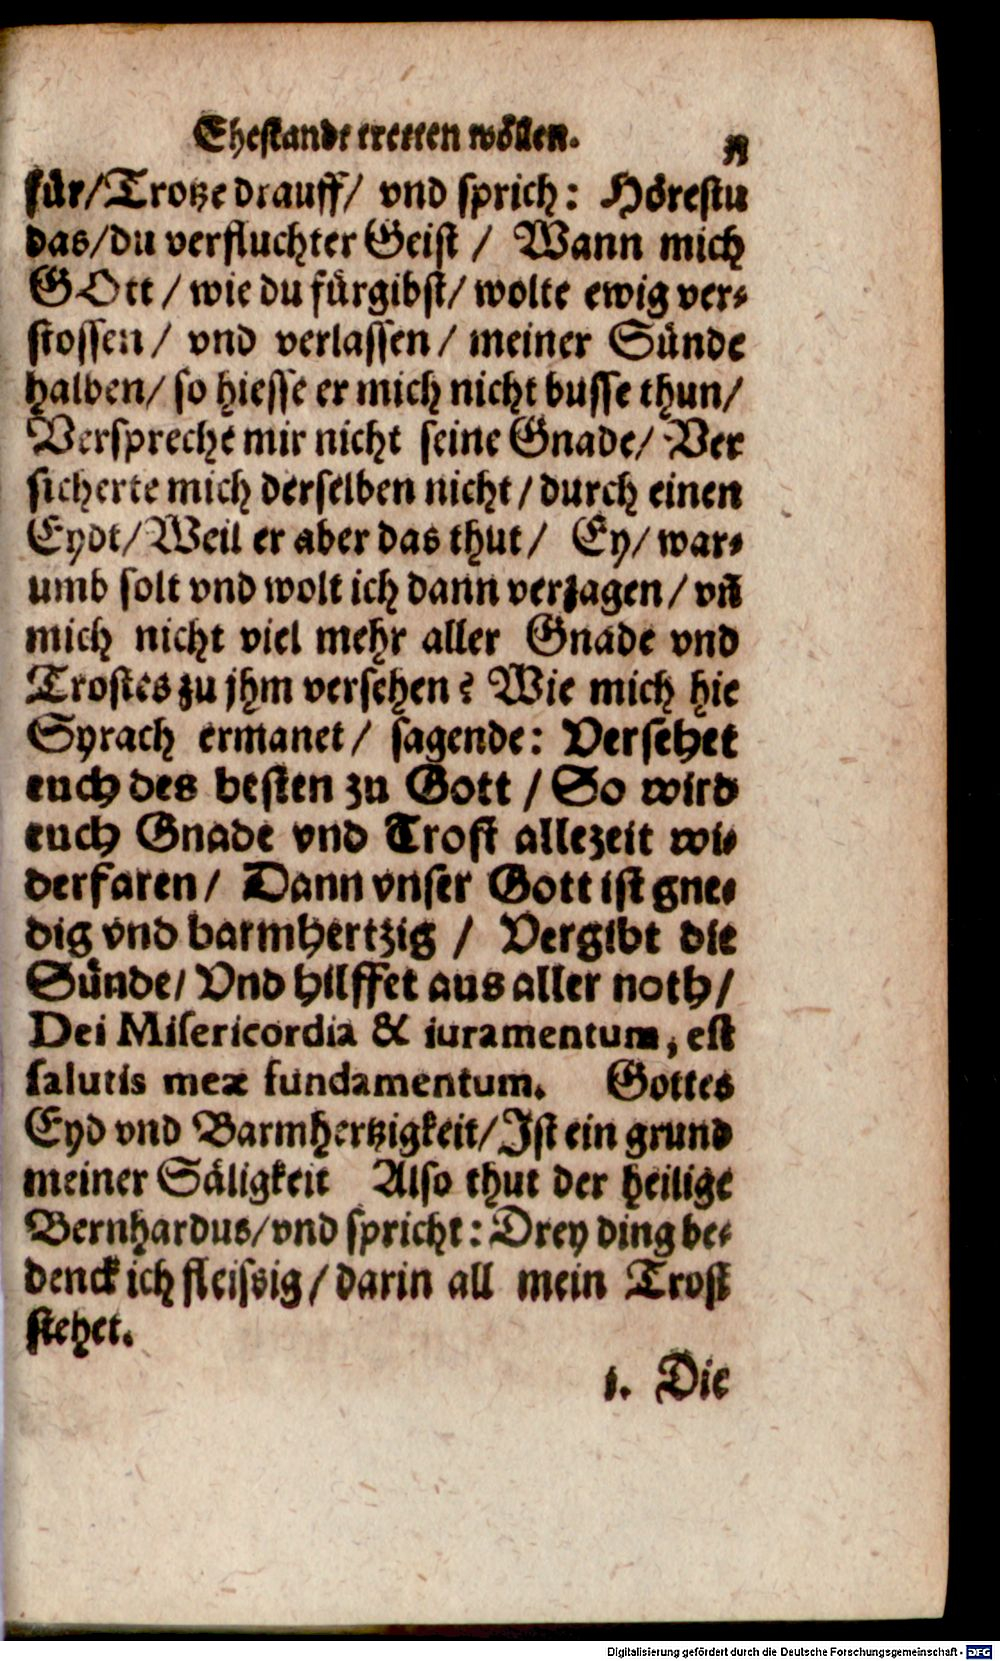 Ehestandt tretten wöllen.
für/Trotze drauff/ vnd sprich: Hörestu
das/du verfluchter Geist / Wann mich
GOtt / wie du fürgibst/ wolte ewig ver-
stossen / vnd verlassen / meiner Sünde
halben/ so hiesse er mich nicht busse thun/
Versprecht mir nicht seine Gnade/ Ver
sicherte mich derselben nicht / durch einen
Eydt/ Weil er aber das thut / Ey/ war-
umb solt vnd wolt ich dann verzagen / vñ
mich nicht viel mehr aller Gnade vnd
Trostes zu jhm versehen? Wie mich hie
Syrach ermanet / sagende: Versehet
euch des besten zu Gott / So wird
euch Gnade vnd Trost allezeit wi-
derfaren/ Dann vnser Gott ist gne-
dig vnd barmhertzig / Vergibt die
Sünde/ Vnd hilffet aus aller noth/
Dei Misericordia & iuramentum, est
salutis meæ fundamentum. Gottes
Eyd vnd Barmhertzigkeit/Ist ein grund
meiner Säligkeit Also thut der heilige
Bernhardus/vnd spricht: Drey ding be-
denck ich fleissig/darin all mein Trost
stehet.
1. Die
Digitalisierung gefördert durch die Deutsche Forschungsgemeinschaft - DFG